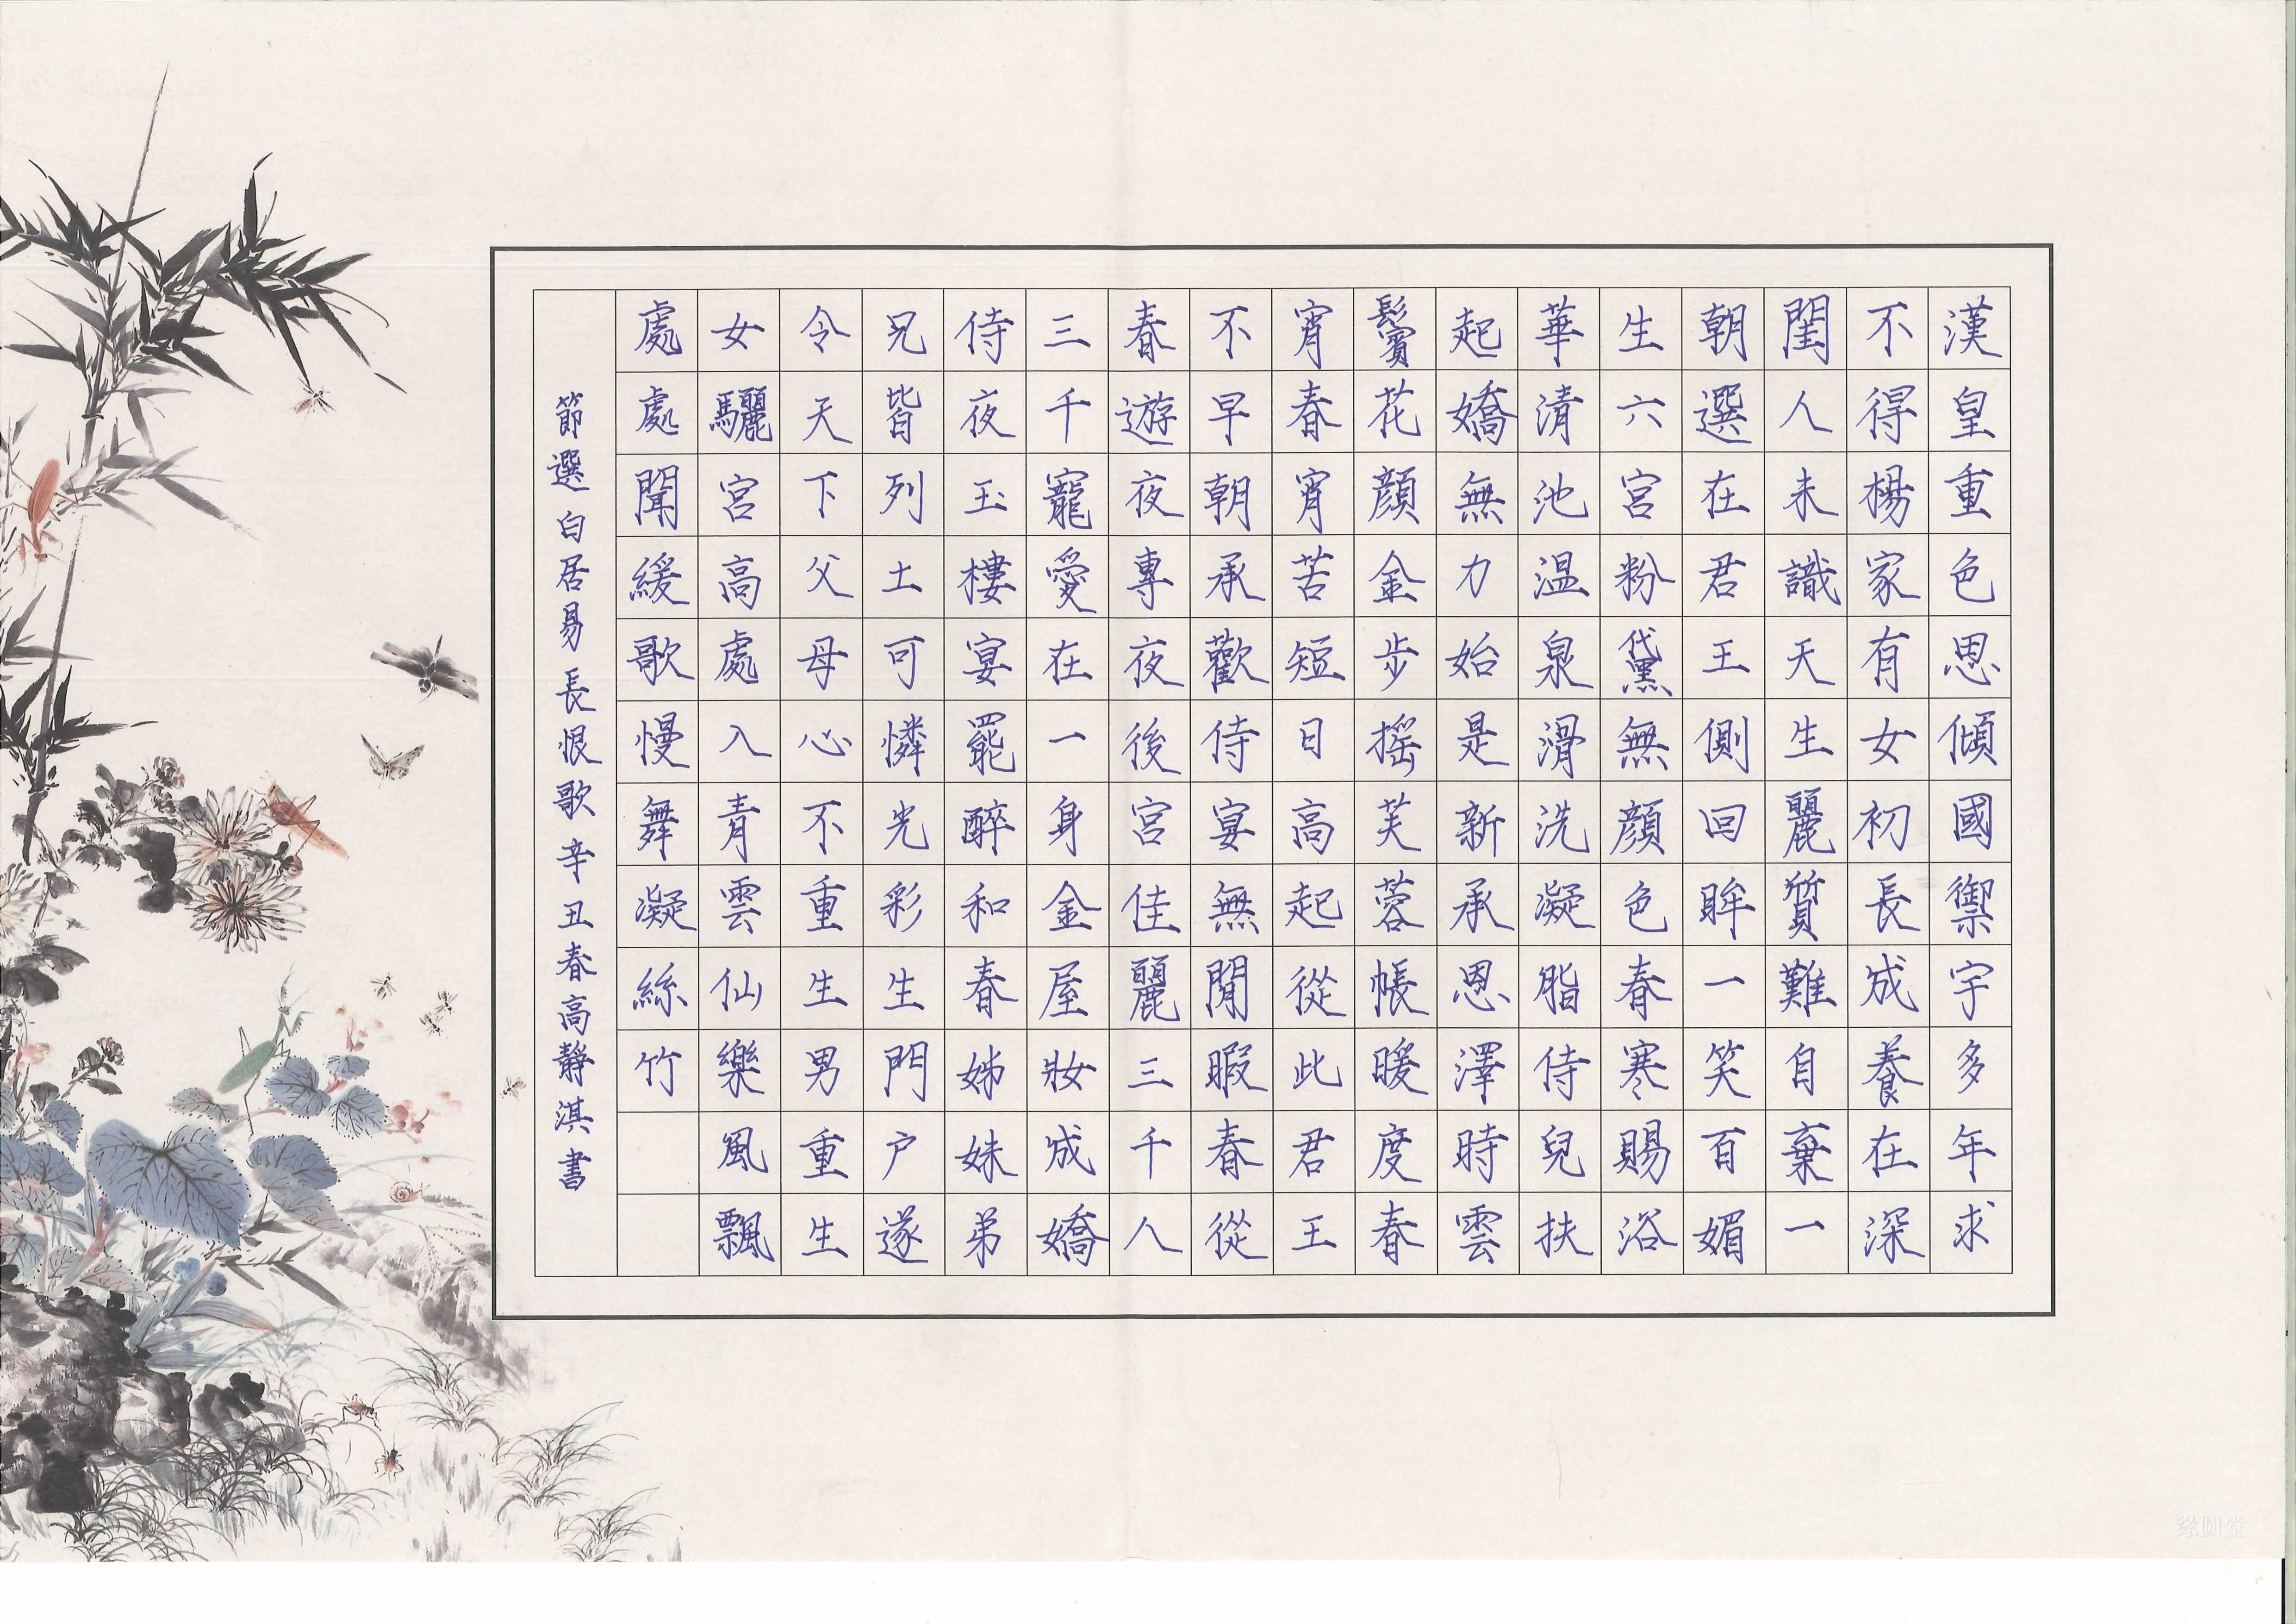 漢皇重色思傾國禦宇多年求
不得楊家有女初長成養在深
閨人未識天生麗質難自棄一
朝選在君王側回眸一笑百媚
生六宮粉黛無顏色春寒賜浴
華清池温泉滑洗凝脂侍兒扶
起嬌無力始是新承恩澤時雲
鬢花顏金步搖芙蓉帳暖度春
宵春宵苦短日高起從此君王
不早朝承歡侍宴無閒暇春從
春遊夜專夜後宮佳麗三千人
三千寵愛在一身金屋妝成嬌
侍夜玉樓宴罷醉和春姊妹弟
兄皆列土可憐光彩生門户遂
令天下父母心不重生男重生
女驪宮高處入青雲仙樂風飄
處處聞緩歌慢舞凝絲竹
節選白居易長恨歌辛丑春高靜淇書
緣圓堂